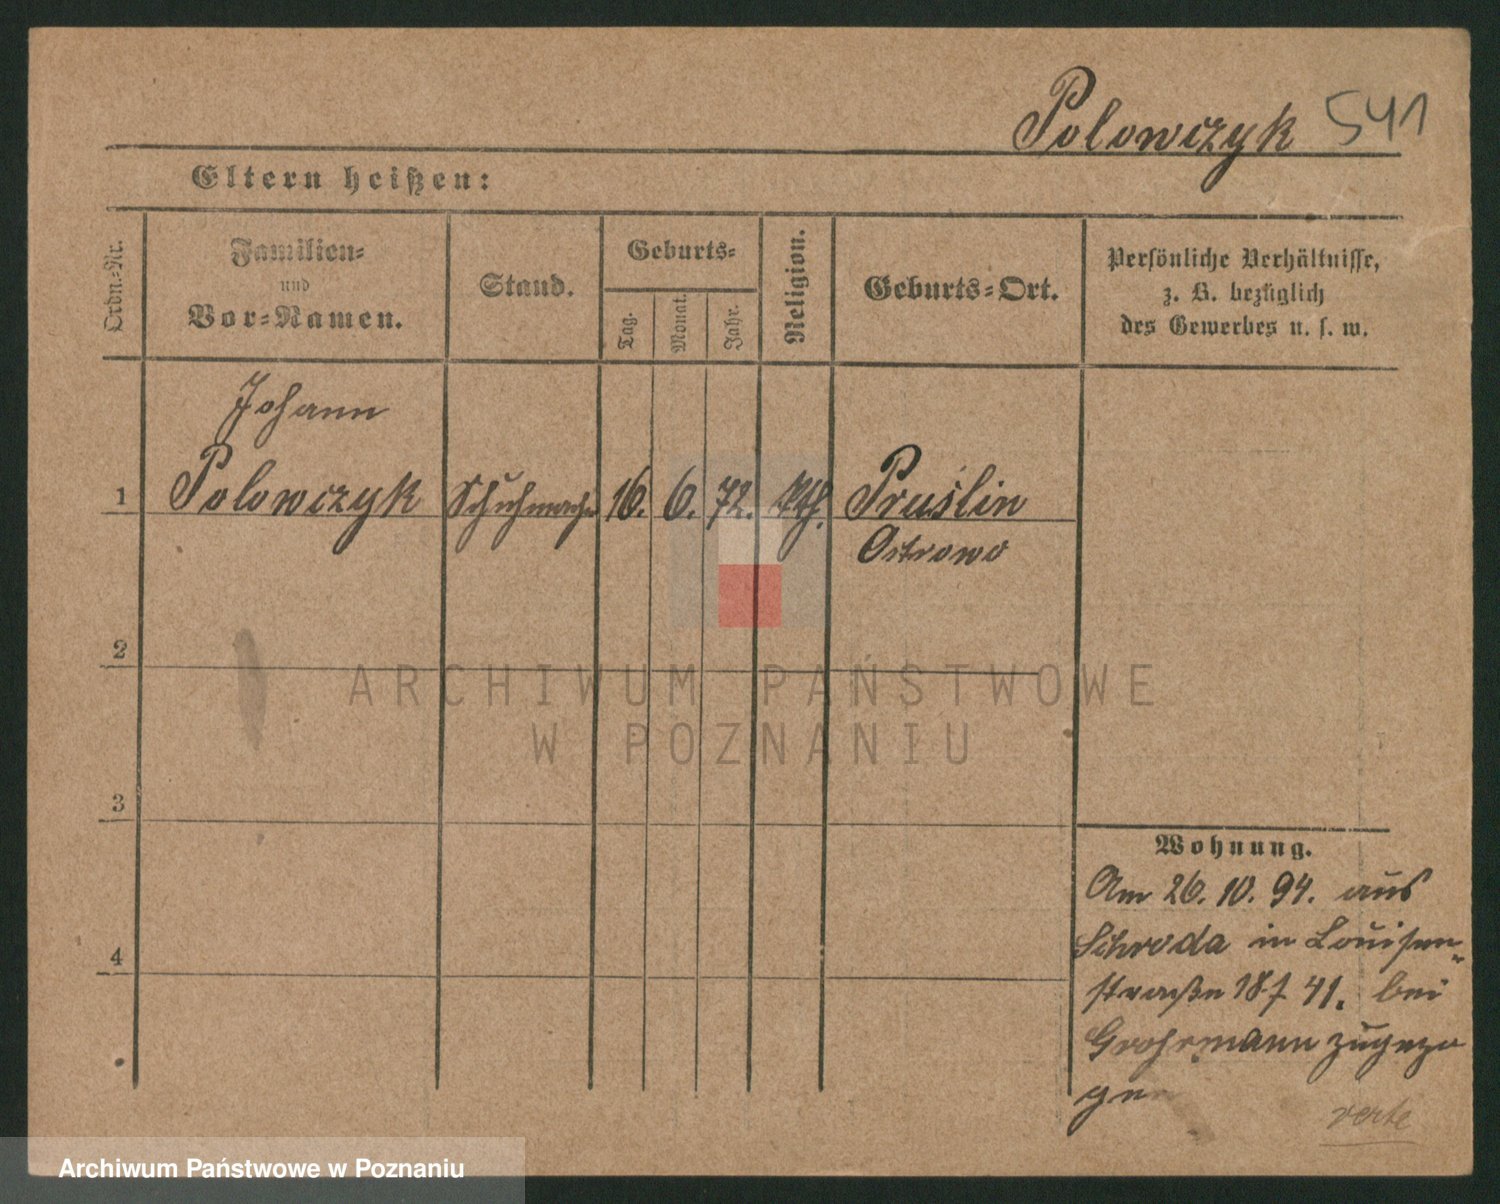 Polowczyk 541
Eltern heißen:
Ordn.-Nr.
Familien-
und
Vor-Namen.
Stand.
Geburts-
Tag.
Monat.
Jahr.
Religion.
Geburts-Ort.
Persönliche Verhältnisse,
z. B. bezüglich
des Gewerbes u. s. w.
Johann
1 Polowczyk Schuhmacher 16. 6. 72. kth. Pruślin
Ostrowo
2
3
4
Wohnung.
Am 26. 10. 94. aus
Schroda in Louisen-
straße 18 41. bei
Grohrmann zugezo
gen
verte
ARCHIWUM PAŃSTWOWE
W POZNANIU
Archiwum Państwowe w Poznaniu